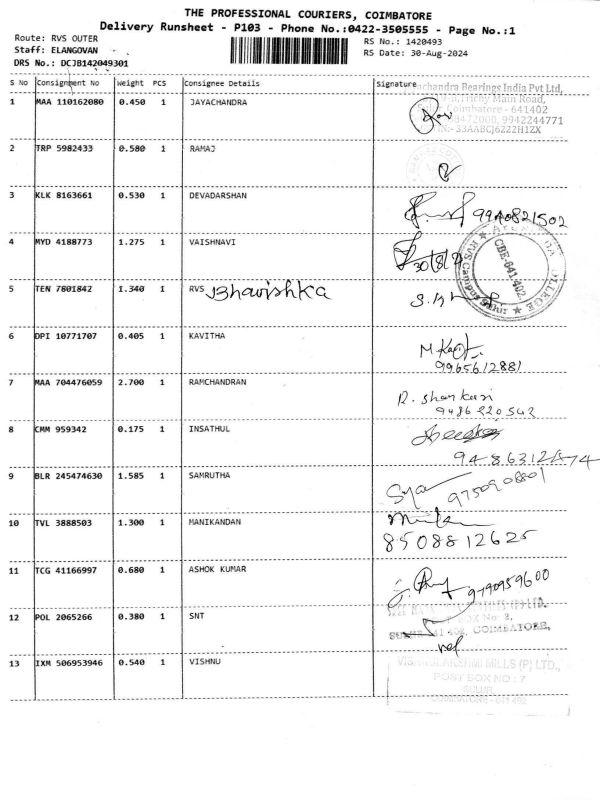 THE PROFESSIONAL COURIERS, COIMBATORE
Delivery Runsheet - P103 - Phone No.:0422-3505555 - Page No.:1
Route: RVS OUTER
RS No.: 1420493
Staff: ELANGOVAN
RS Date: 30-Aug-2024
DRS No.: DCJB142049301
S No Consignment No Weight PCS Consignee Details Signature
1 MAA 110162080 0.450 1 JAYACHANDRA
chandra Bearings India Pvt Ltd,
Trichy Main Road,
Coimbatore - 641402
9942244771
33AABCJ6222H1ZX
2 TRP 5982433 0.580 1 RAMAJ
3 KLK 8163661 0.530 1 DEVADARSHAN
9940821502
4 MYD 4188773 1.275 1 VAISHNAVI
30/8/2
RVS
CBE-641 402
5 TEN 7801842 1.340 1 RVS Bhavishka
6 DPI 10771707 0.405 1 KAVITHA
9965612881
7 MAA 704476059 2.700 1 RAMCHANDRAN
R. Shankari
9486220542
8 CMM 959342 0.175 1 INSATHUL
9 BLR 245474630 1.585 1 SAMRUTHA
10 TVL 3888503 1.300 1 MANIKANDAN
8508812625
11 TCG 41166997 0.680 1 ASHOK KUMAR
9790959600
12 POL 2065266 0.380 1 SNT
COIMBATORE,
13 IXM 506953946 0.540 1 VISHNU
MILLS (P) LTD.,
POST BOX NO : 7
SULUR